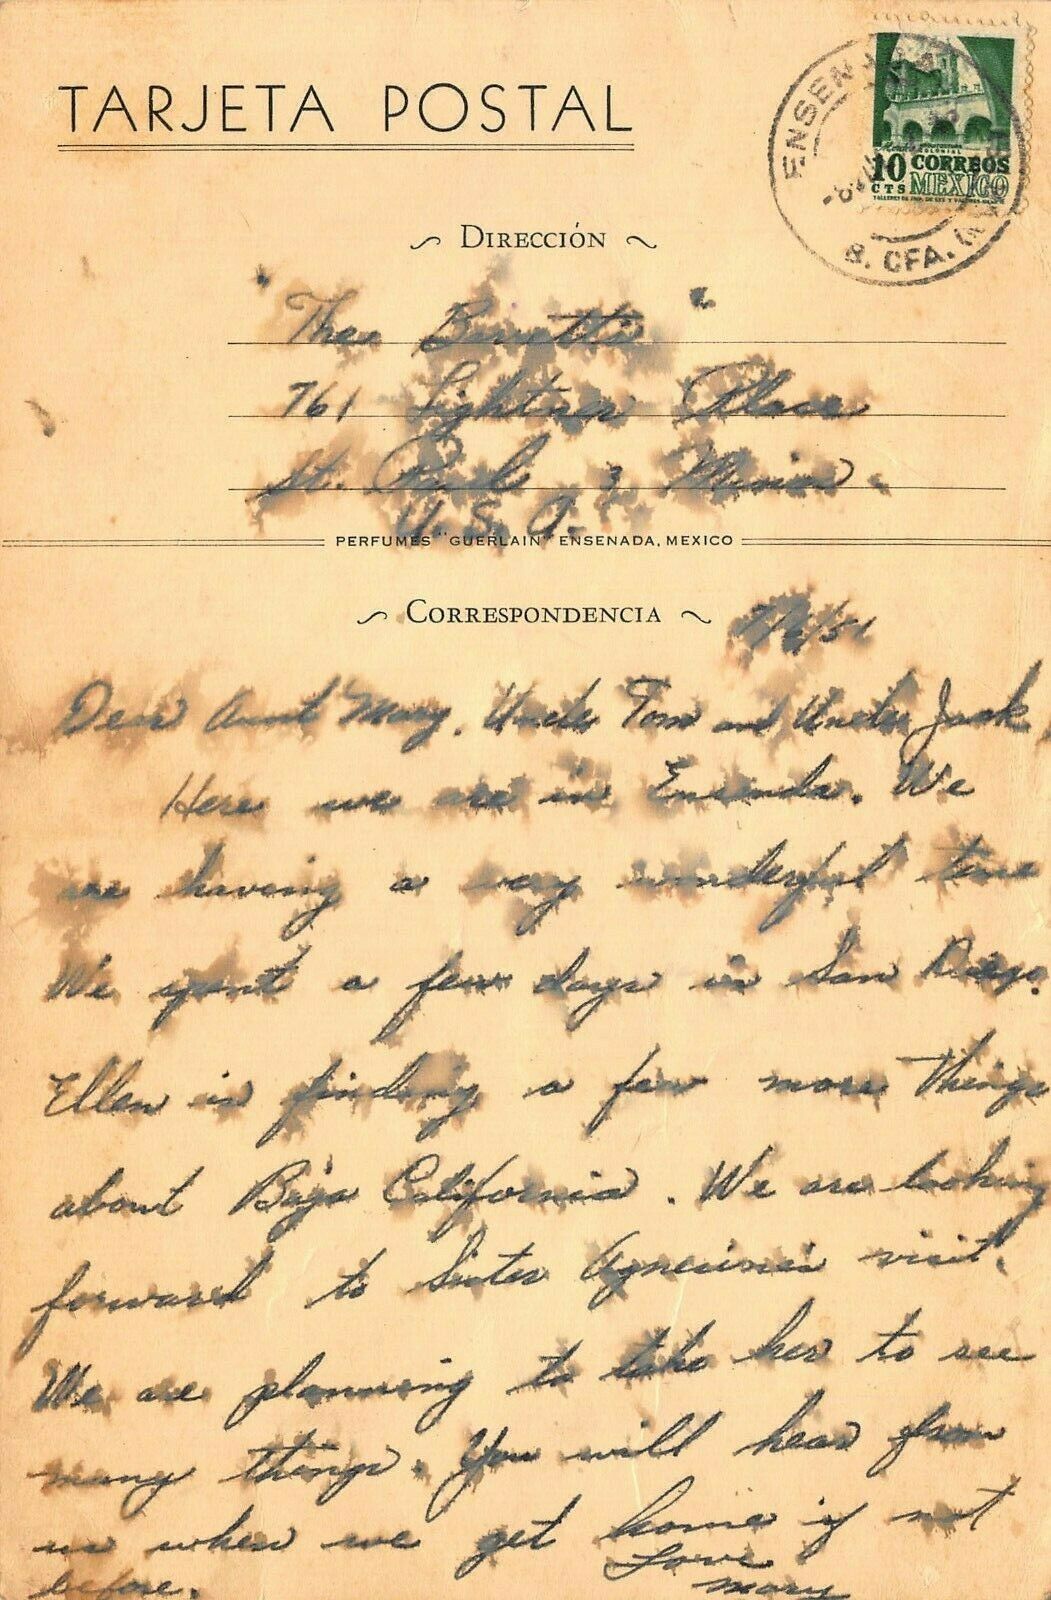 TARJETA POSTAL
ENSENADA
B. CFA.
COLONIAL
10 CORREOS
CTS MEXICO
DIRECCIÓN
"The Barretts"
761 Lightner Place
St. Paul, Minn.
U.S.A.
PERFUMES "GUERLAIN" ENSENADA, MEXICO
CORRESPONDENCIA
7/6/51
Dear Aunt Mary, Uncle Tom and Uncle Jack
Here we are in Ensenda. We
are having a very wonderful time
We spent a few days in San Diego.
Ellen is finding a few more things
about Baja California. We are looking
forward to Sister visit.
We are planning to take her to see
many things. You will hear from
us when we get home if not
before.
Love
Mary